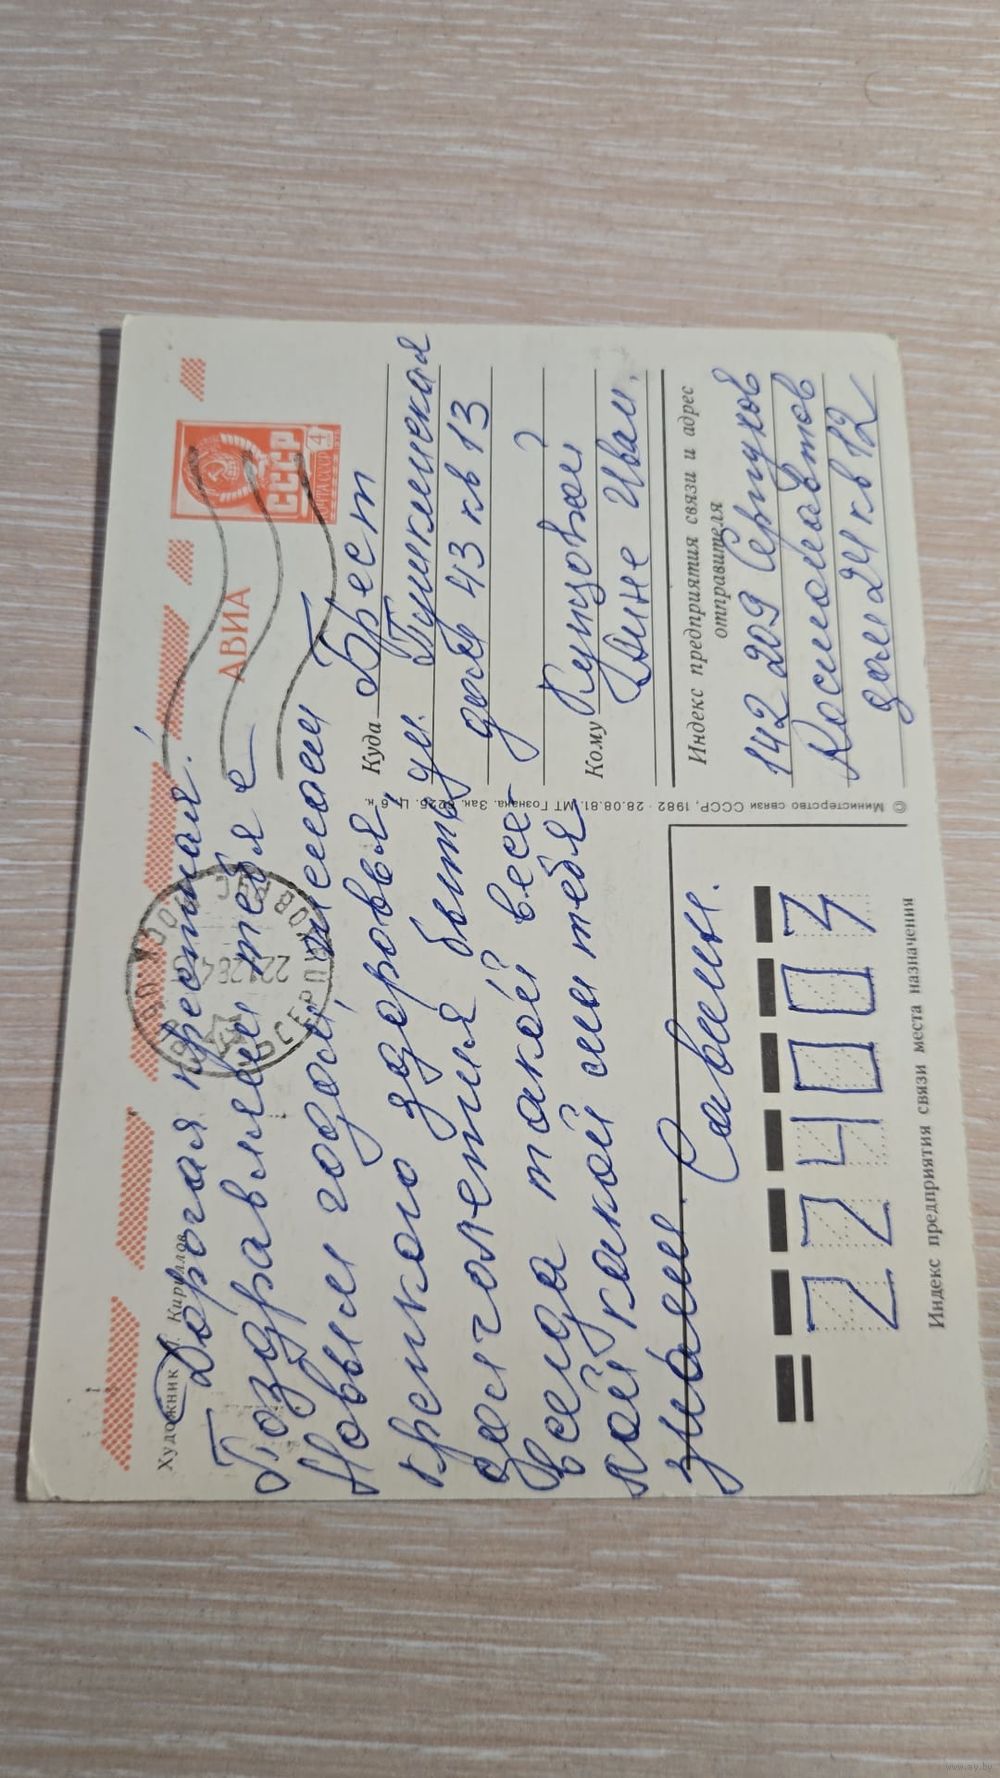 Художник Л. Кириллов
АВИА
СССР
4
ПОЧТА СССР
Дорогая крестная!
Поздравляем тебя с
Новым годом, желаем
крепкого здоровья,
долголетия быть
всегда такой весе-
лой какой мы тебя
знаем. Савины.
Куда Брест
ул. Пушкинская
дом 43 кв 13
Кому
Нине Иван.
Индекс предприятия связи и адрес
отправителя
142 209 Серпухов
Космонавтов
дом 24 кв 12
© Министерство связи СССР, 1982 · 28.08.81. МТ Гознака. Зак. 6225. Ц. 6 к.
224003
Индекс предприятия связи места назначения
www.ay.by